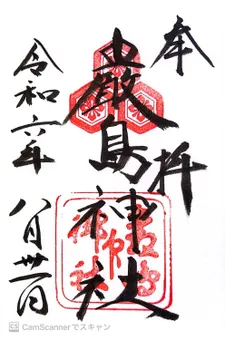 奉拝
嚴島神社
令和六年
八月卅一日
CamScannerでスキャン